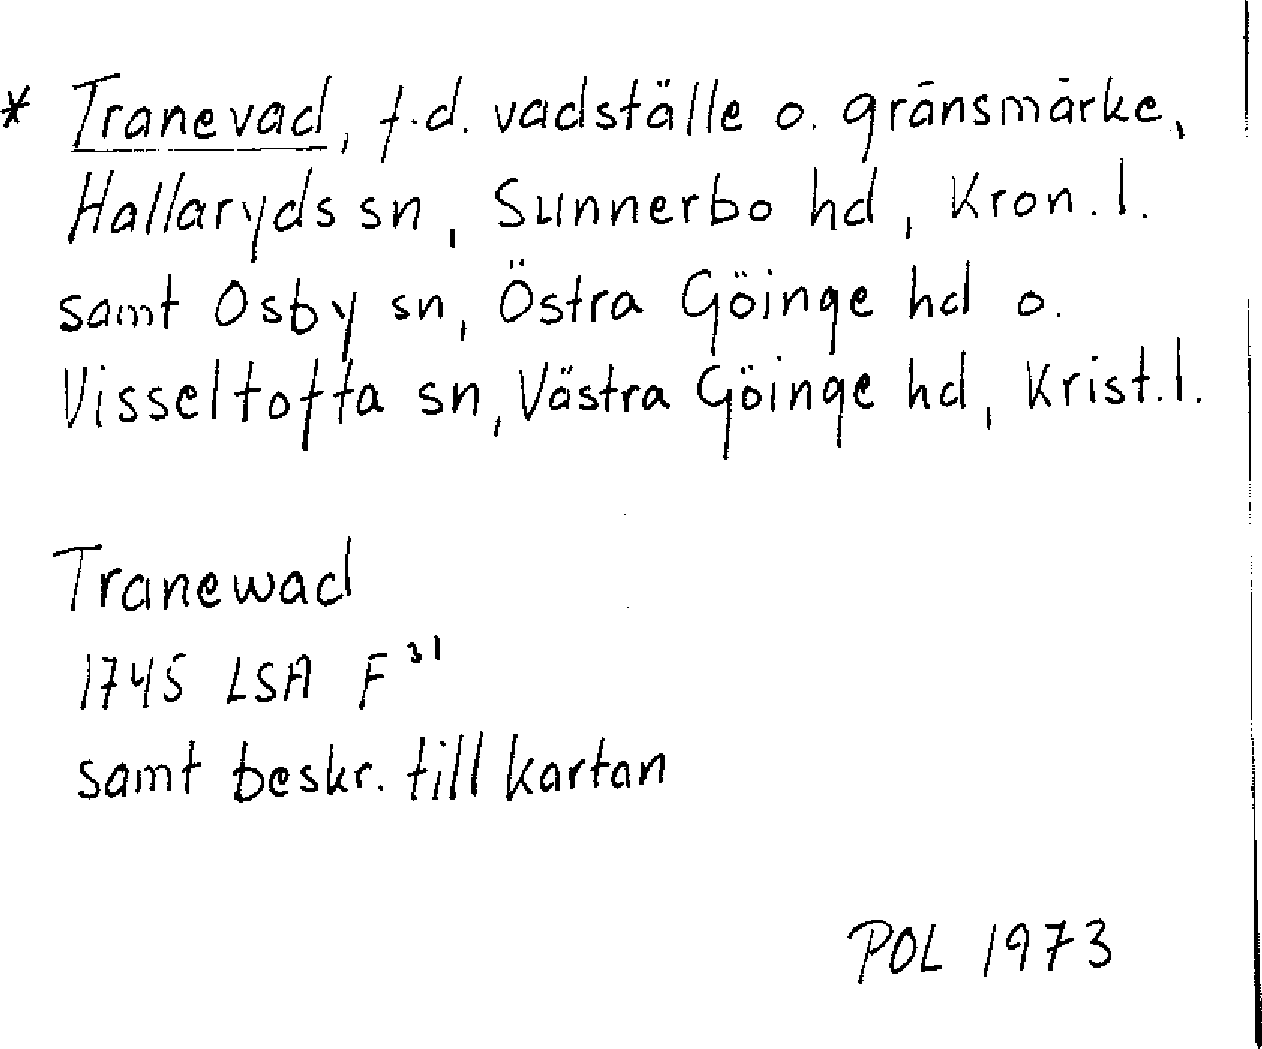 * Tranevad, f.d. vadställe o. gränsmärke,
Hallaryds sn, Sunnerbo hd, Kron. l.
samt Osby sn, Östra Göinge hd o.
Visseltofta sn, Västra Göinge hd, Krist. l.
Tranewad
1745 LSA F³¹
samt beskr. till kartan
POL 1973